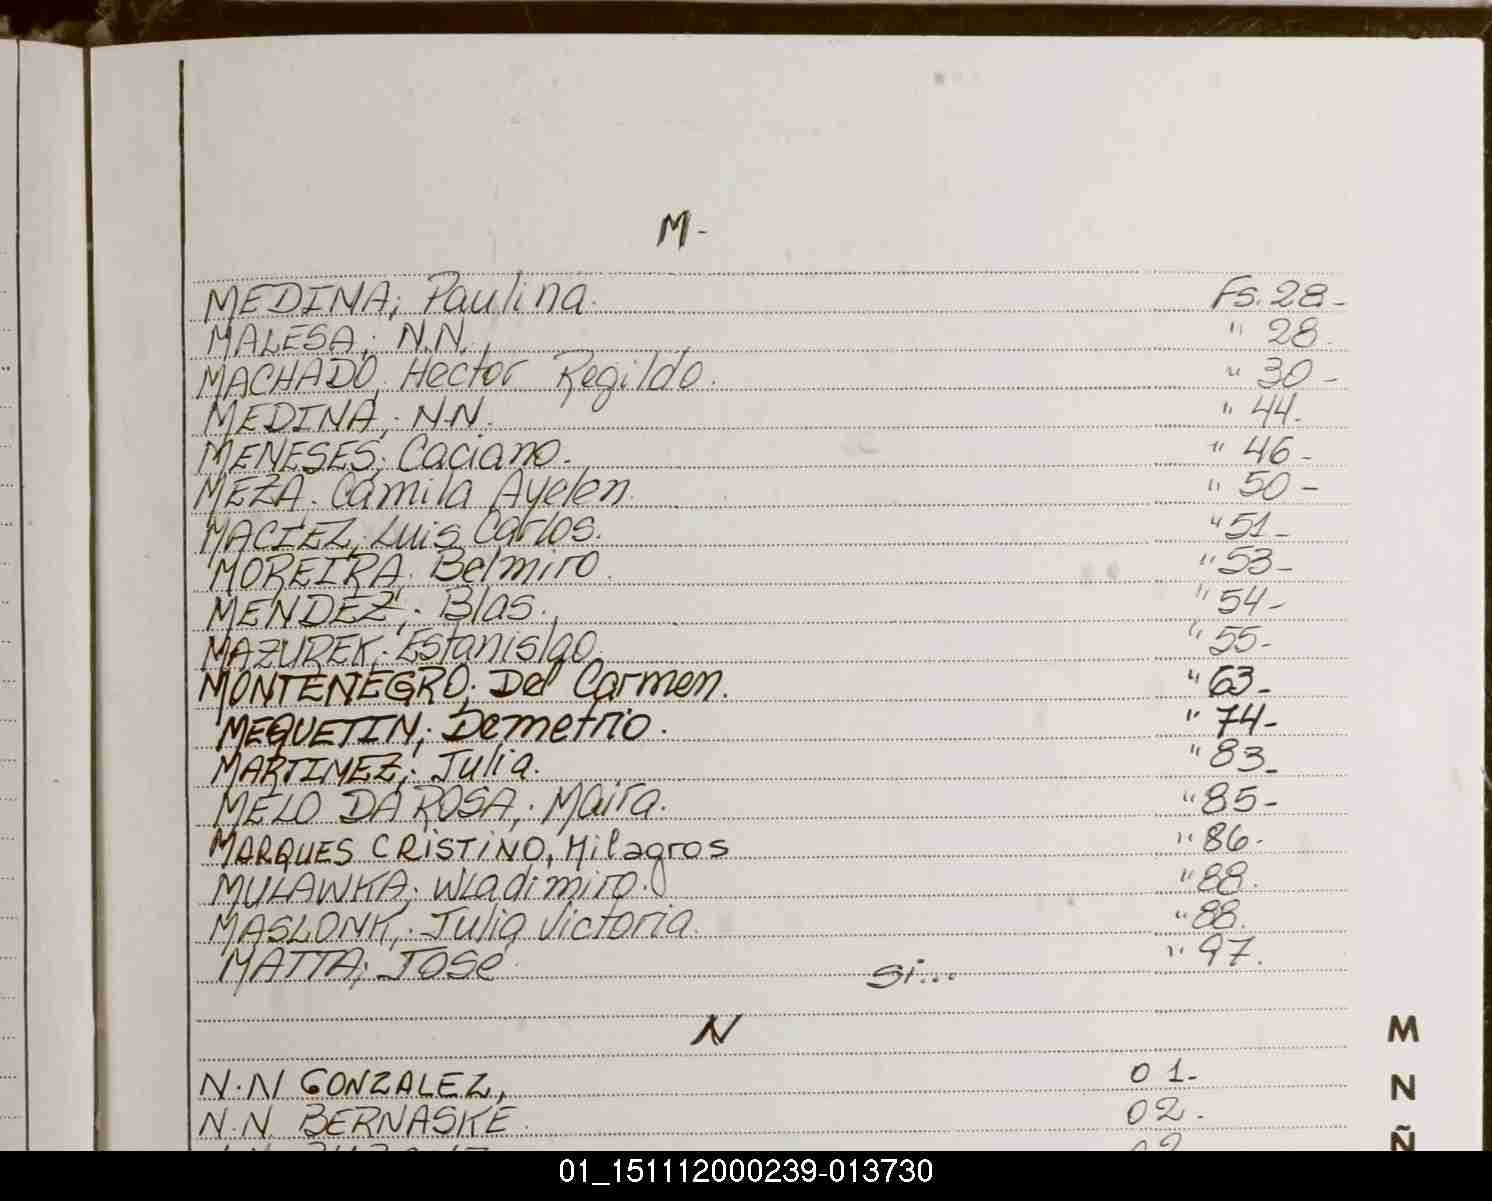 M-
MEDINA; Paulina. Fs. 28-
MALESA; N.N. " 28.
MACHADO, Hector Regildo. " 30-
MEDINA; N.N. " 44-
MENESES; Caciano. " 46-
MEZA. Camila Ayelen. " 50-
MACIEZ, Luis Carlos. " 51-
MOREIRA; Belmiro. " 53-
MENDEZ; Blas. " 54-
MAZUREK; Estanislao. " 55-
MONTENEGRO; Del Carmen. " 63-
MEQUETIN; Demetrio. " 74-
MARTINEZ; Julia. " 83-
MELO DA ROSA; Maira. " 85-
MARQUES CRISTINO, Milagros " 86-
MULAWKA; Wladimiro. " 88.
MASLONK; Julia Victoria. " 88.
MATTA; Jose Si... " 97.
N
N.N GONZALEZ, 01-
N.N. BERNASKE. 02-
M
N
Ñ
01_151112000239-013730